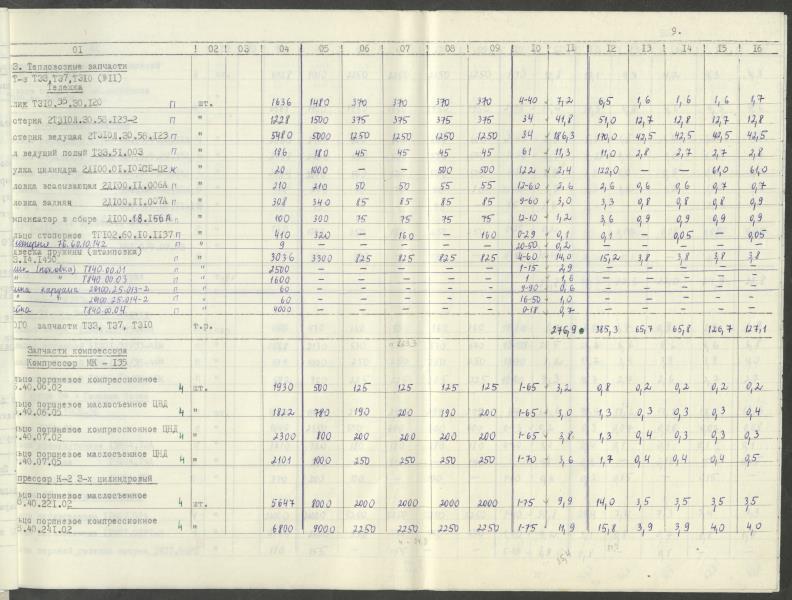 9.
01 ! 02 ! 03 ! 04 ! 05 ! 06 ! 07 ! 08 ! 09 ! 10 ! 11 ! 12 ! 13 ! 14 ! 15 ! 16
3. Тепловозные запчасти
Т-з ТЭ3,ТЭ7,ТЭ10 (ФII)
Тележка
лик ТЭ10.30.30.120 П шт. 1636 1480 370 370 370 370 4-40 7,2 6,5 1,6 1,6 1,6 1,7
стерня 2ТЭ10Л.30.58.123-2 П " 1228 1500 375 375 375 375 34 41,8 51,0 12,7 12,8 12,7 12,8
стерня ведущая 2ТЭ10Л.30.58.123 П " 5480 5000 1250 1250 1250 1250 34 186,3 170,0 42,5 42,5 42,5 42,5
л ведущий полый ТЭ3.51.003 П " 186 180 45 45 45 45 61 11,3 11,0 2,8 2,7 2,7 2,8
улка цилиндра 2Д100.01.101СБ-02 К " 20 1000 – – 500 500 122 2,4 122,0 – – 61,0 61,0
ловка всасывающая 2Д100.11.006А П " 210 210 50 50 55 55 12-60 2,6 2,6 0,6 0,6 0,7 0,7
ловка задняя 2Д100.11.007А П " 308 340 85 85 85 85 9-60 3,0 3,3 0,8 0,8 0,8 0,9
мпенсатор в сборе Д100.18.156А П " 100 300 75 75 75 75 12-10 1,2 3,6 0,9 0,9 0,9 0,9
льцо стопорное ТГ102.60.10.1137 П " 410 320 – 160 – 160 0-29 0,1 0,1 – 0,05 – 0,05
шестерня 76.60.10.142 П " 9 – – – – – 20-50 0,2 – – – – –
двеска пружины (штамповка)
3.14.1450 П " 3036 3300 825 825 825 825 4-60 14,0 15,2 3,8 3,8 3,8 3,8
(поковка) Т840.00.01 П " 2500 – – – – – 1-15 2,9 – – – – –
" " Т840.00.03 П " 1600 – – – – – 1 1,6 – – – – –
кардана 2Д100.25.013-2 П " 60 – – – – – 9-90 0,6 – – – – –
" " 2Д100.25.014-2 П " 60 – – – – – 16-50 1,0 – – – – –
Т840.00.04 П " 4000 – – – – – 0-18 0,7 – – – – –
ОГО запчасти ТЭ3, ТЭ7, ТЭ10 т.р. 276,9 385,3 65,7 65,8 126,7 127,1
Запчасти компоессора
Компрессор МК – 135
льцо поршневое компрессионное
.40.06.02 Ч шт. 1930 500 125 125 125 125 1-65 3,2 0,8 0,2 0,2 0,2 0,2
льцо поршневое маслосъемное ЦВД
.40.06.05 Ч " 1822 780 190 200 190 200 1-65 3,0 1,3 0,3 0,3 0,3 0,4
льцо поршневое компрессионное ЦНД
.40.07.02 Ч " 2300 800 200 200 200 200 1-65 3,8 1,3 0,4 0,3 0,3 0,3
льцо поршневое маслосъемное ЦНД
.40.07.05 Ч " 2101 1000 250 250 250 250 1-70 3,6 1,7 0,4 0,4 0,4 0,5
прессор К-2 3-х цилиндровый
льцо поршневое маслосъемное
.40.221.02 Ч шт. 5647 8000 2000 2000 2000 2000 1-75 9,9 14,0 3,5 3,5 3,5 3,5
льцо поршневое компессионное
.40.241.02 Ч " 6800 9000 2250 2250 2250 2250 1-75 11,9 15,8 3,9 3,9 4,0 4,0